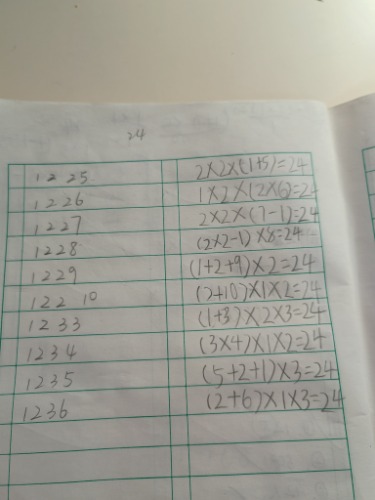 24
1 2 2 5 2×2×(1+5)=24
1 2 2 6 1×2×(2×6)=24
1 2 2 7 2×2×(7-1)=24
1 2 2 8 (2×2-1)×8=24
1 2 2 9 (1+2+9)×2=24
1 2 2 10 (2+10)×1×2=24
1 2 3 3 (1+3)×2×3=24
1 2 3 4 (3×4)×1×2=24
1 2 3 5 (5+2+1)×3=24
1 2 3 6 (2+6)×1×3=24